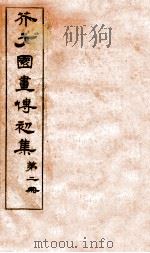 芥子園畫傳初集
第二冊
mtoou.info